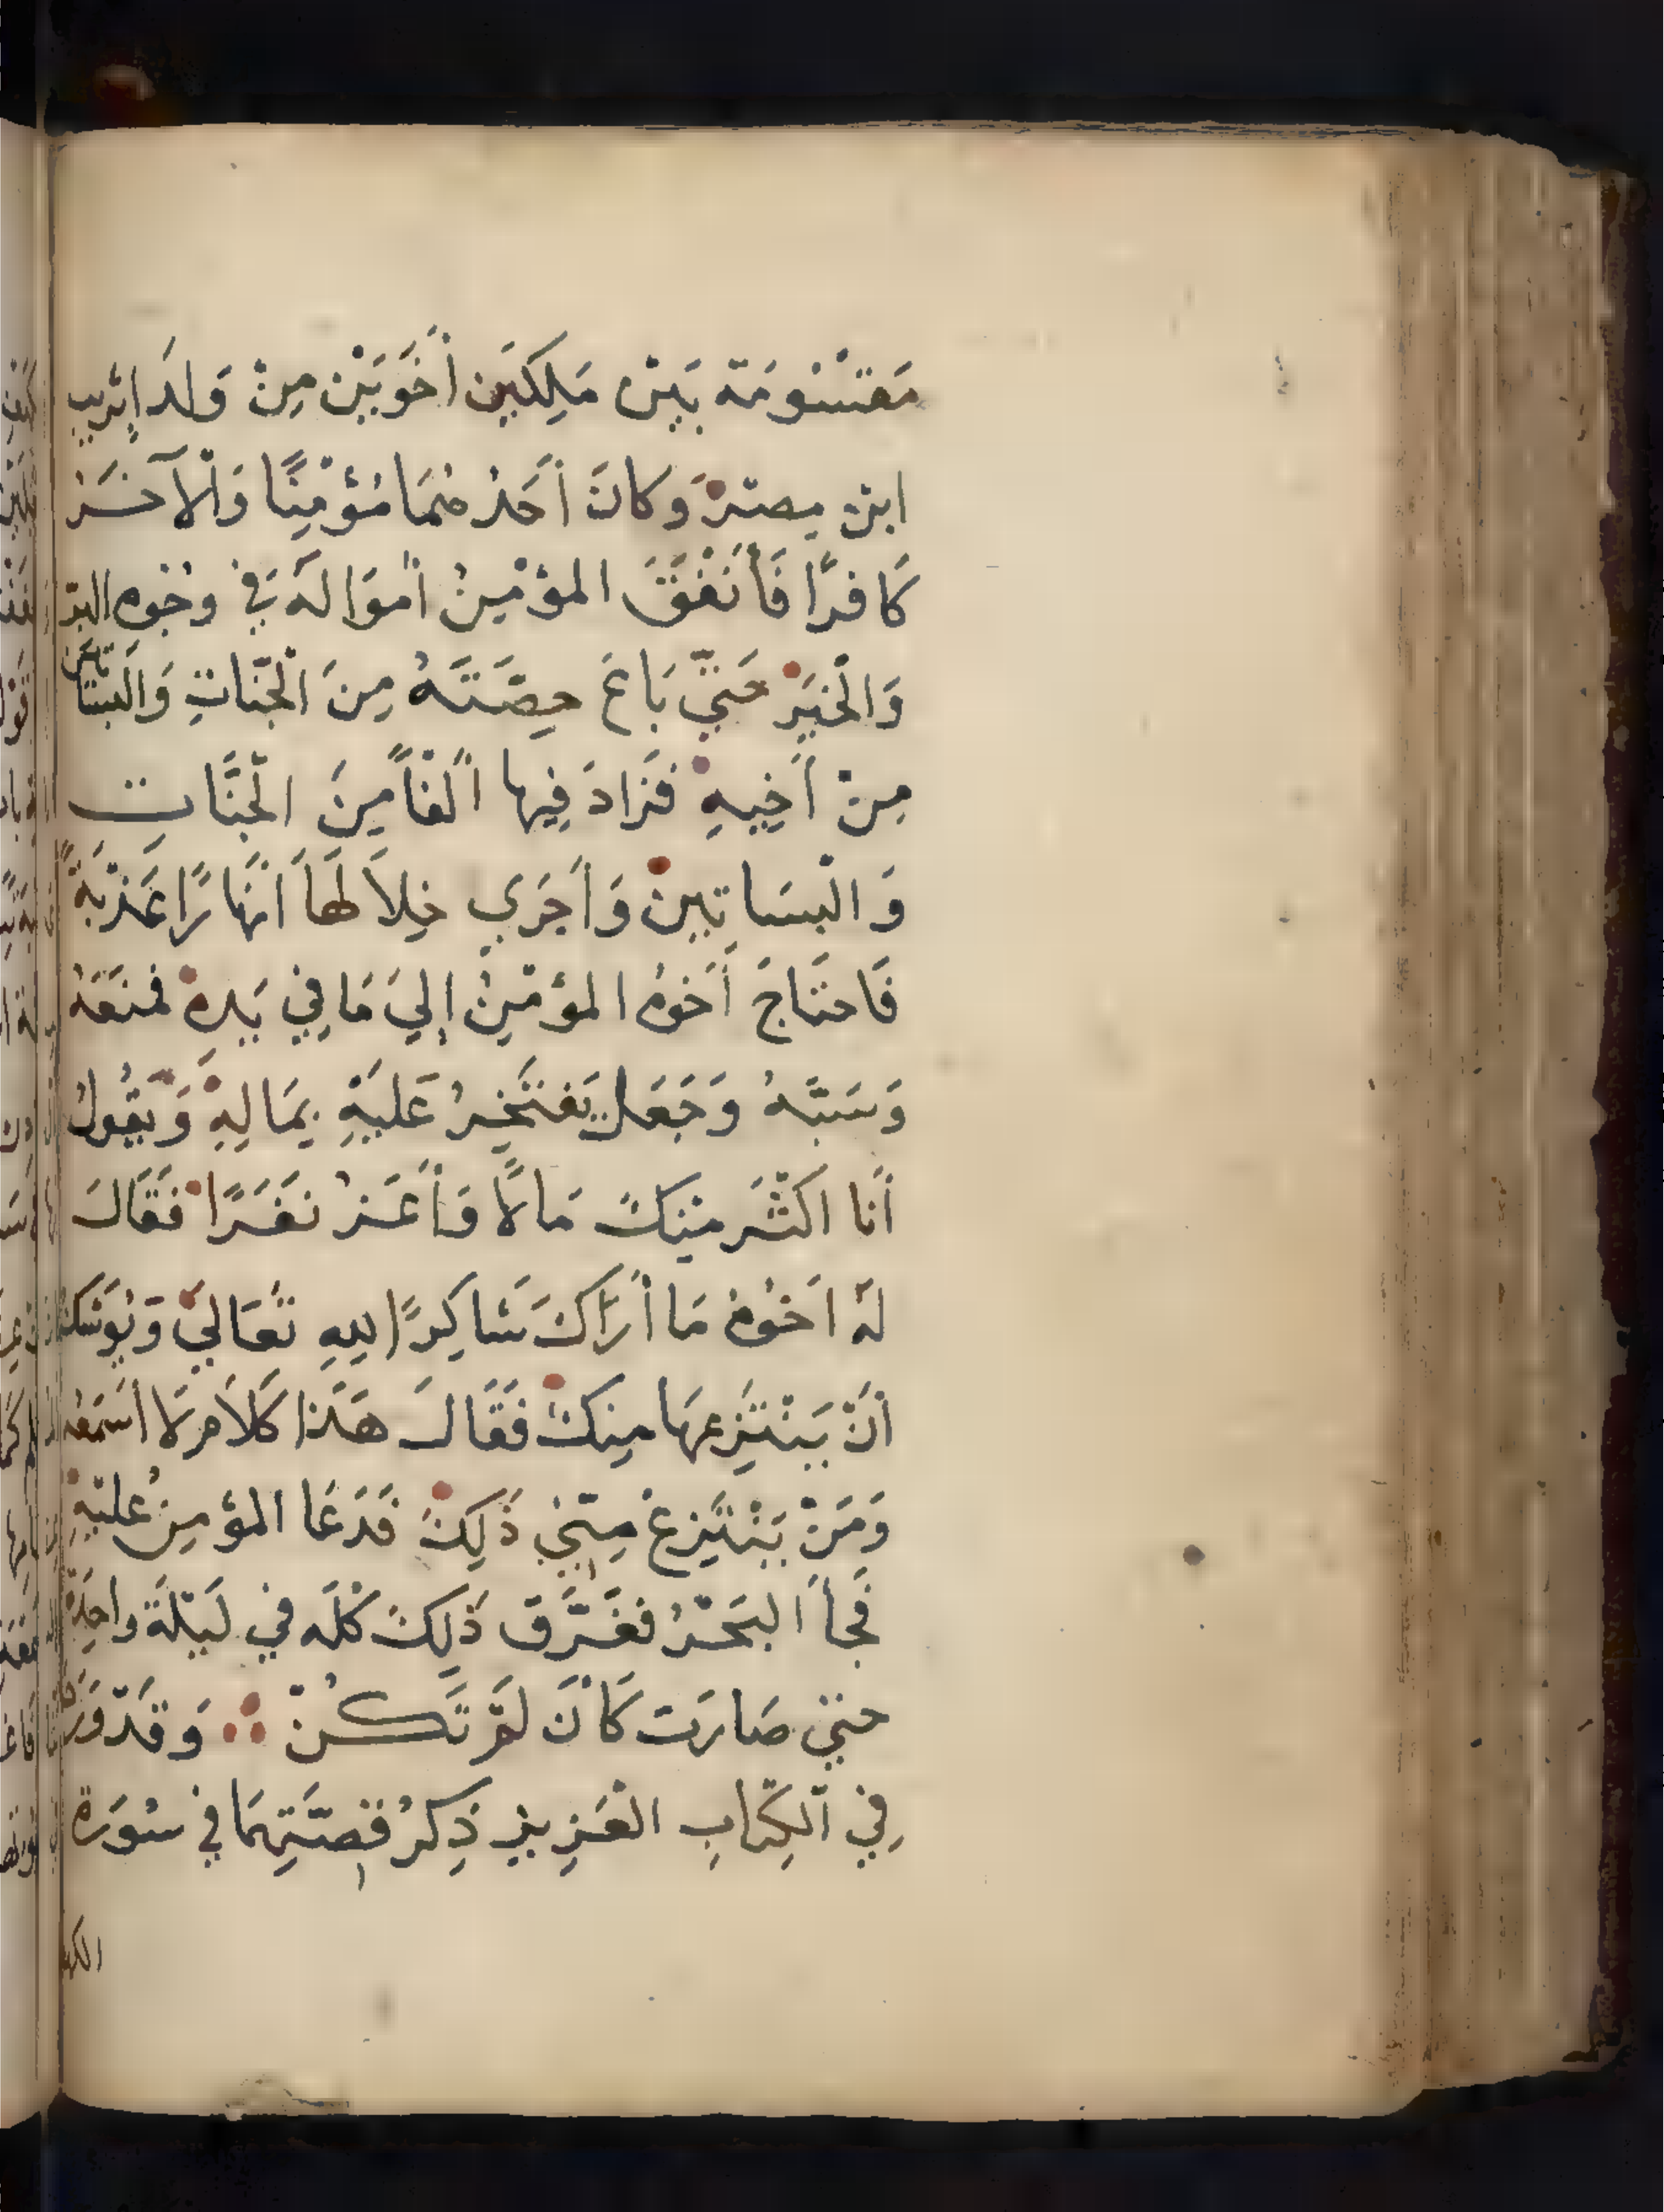 مَقْسُومَة بَيْن مَلِكَيْن أَخَوَيْن مِنْ وَلَد إتريب
ابن مِصْرَ وَكانَ أَحَدُهُمَا مُؤْمِنًا وَالْآخَرُ
كَافرًا فَأَنْفَقَ المؤْمِنُ أَمْوَالَه في وُجُوه البر
وَالْخَيْر حَتّي بَاعَ حِصَّتَهُ مِنَ الْجَنّاتِ وَالْبسَاتين
مِنْ أَخِيهِ فَزَادَ فِيها أَلْفًا مِنَ الْجَنَّاتِ
وَالْبسَاتينْ وَأَجَري خِلَالَهَا أَنْهَارًا عَذْبَةً
فَاحتَاجَ أَخوُه المؤمِنُ إِليَ مَا فِي يَدِهِ فمنَعَهُ
وَسَبَّهُ وَجَعَل يَفتَخِرُ عَلَيْهِ بِمَالِهِ وَيَقُولُ
أَنا اكْثَر مِنكَ مَالًا وَأَعَز نَفَرًا فَقَالَ
لَهُ اَخُوهُ مَا أَرَاكَ شَاكِرًا للهِ تَعَاليَ وَيُوشكُ
أَنْ يَنْتَزِعهَا مِنكَ فَقَالَ هَذا كَلَام لَا أَسْمَعُه
وَمَنْ يَنْتَزِعْ مِنّي ذَلِكَ فَدَعَا المؤمِنُ عليْهِ
فَجأَ البَحْرُ فغَرَّقَ ذَلِكَ كُلَّه في لَيْلَة واحِدَة
حتي صَارَت كَأن لَمْ تَكُنْ ∴ وَقَدْ وَرَدَ
فِي الْكِتَابِ الْعَزِيزِ ذِكرُ قِصَّتِهِمَا في سُورَة
الكهف